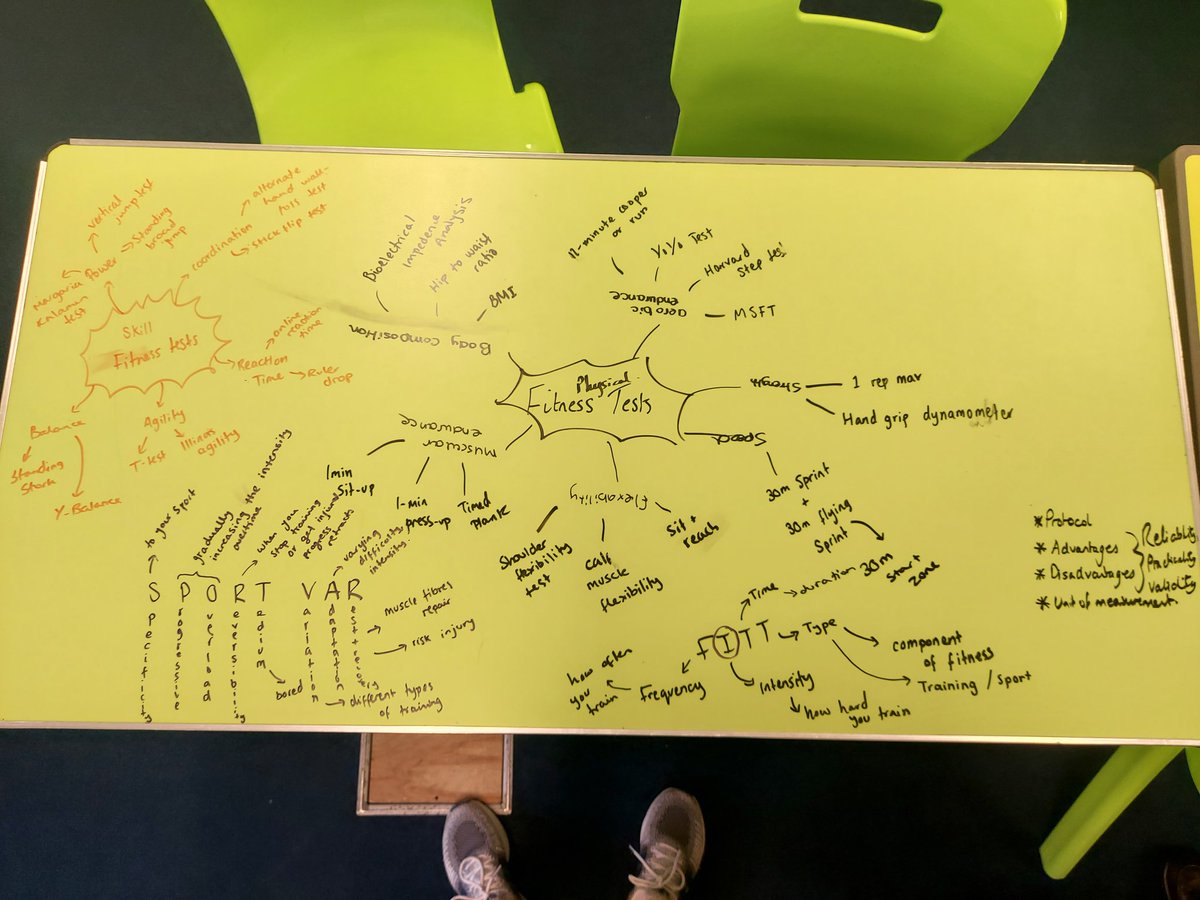 Skill
Fitness tests
Power
vertical
jump test
Standing
broad
jump
Margaria
Kalaman
test
coordination
alternate
hand wall-
toss test
Stick flip test
Reaction
Time
online
reaction
time
Ruler
drop
Agility
T-test
Illinois
agility
Balance
Standing
Stork
Y-Balance
Physical
Fitness Tests
Body composition
Bioelectrical
Impedence
Analysis
Hip to waist
ratio
BMI
aerobic
endurance
12-minute cooper
or run
YoYo Test
Harvard
Step test
MSFT
Strength
1 rep max
Hand grip dynamometer
Speed
30m Sprint
+
30m flying
Sprint
30m
start
zone
flexability
Shoulder
flexibility
test
calf
muscle
flexibility
Sit +
reach
muscular
endurance
1min
Sit-up
1-min
press-up
Timed
plank
SPORT VAR
Specificity
to your sport
Progressive
Overload
gradually
increasing the intensity
overtime
Reversibility
when you
stop training
or get injured
progress
retracts
Tedium
bored
Variation
different types
of training
Adaptation
varying
difficulty/
intensity.
Rest + recovery
muscle fibres
repair
risk injury
FITT
Frequency
how often
you
train
Intensity
how hard
you train
Time
duration
Type
component
of fitness
Training / Sport
* Protocol
* Advantages
* Disadvantages
* Unit of measurement.
Reliability
Practicality
Validity